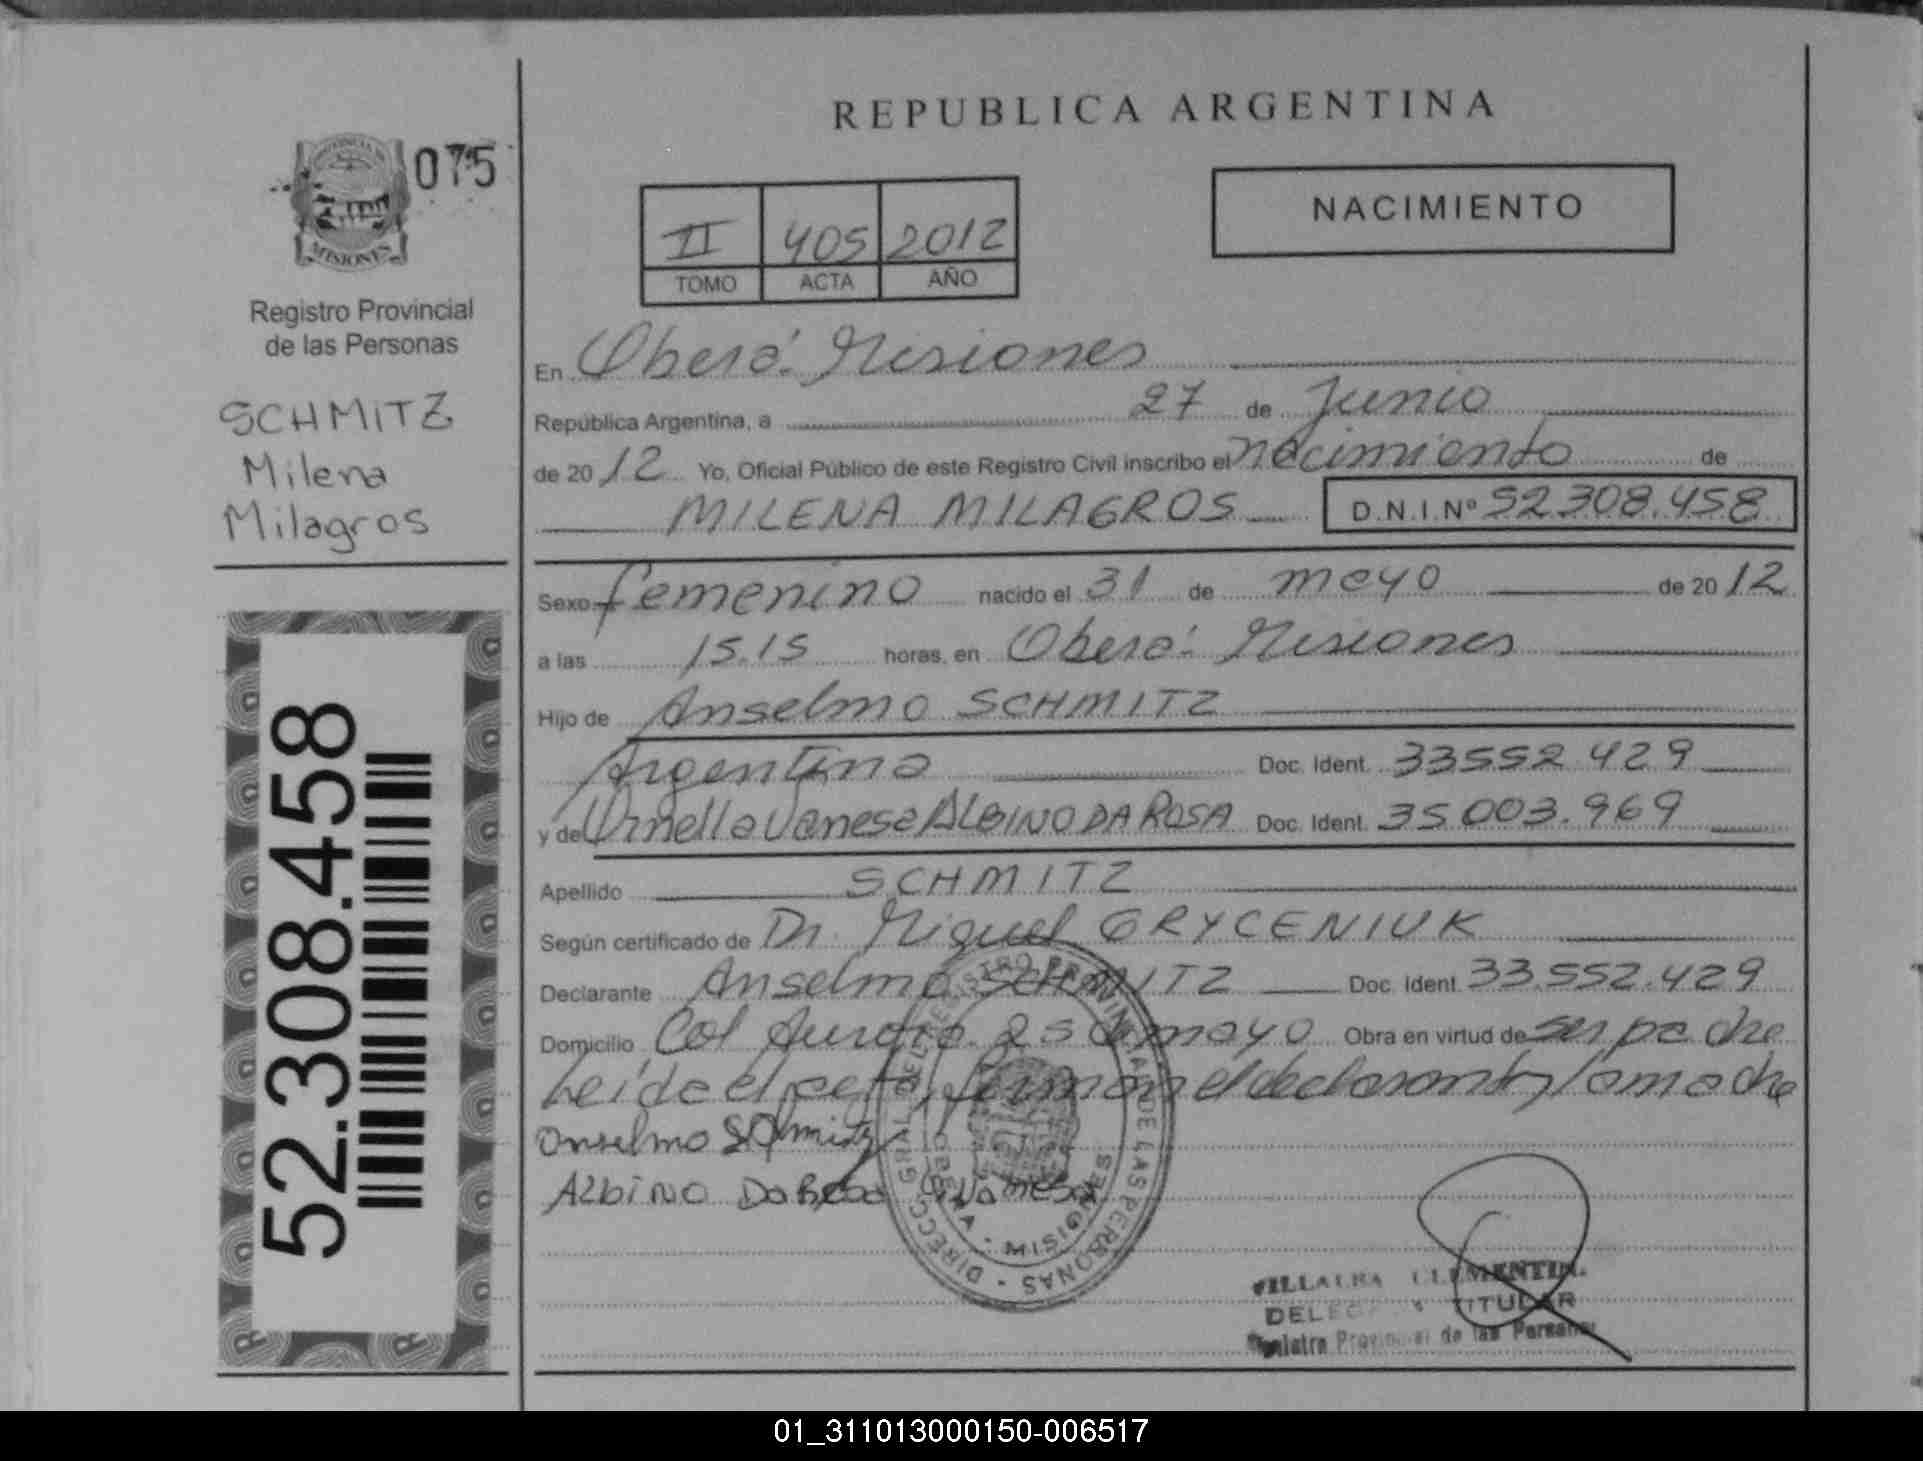 075
PROVINCIA DE
MISIONES
Registro Provincial
de las Personas
SCHMITZ
Milena
Milagros
52.308.458
REPUBLICA ARGENTINA
II 405 2012
TOMO ACTA AÑO
NACIMIENTO
En Oberá. Misiones
República Argentina, a 27 de Junio
de 2012 Yo, Oficial Público de este Registro Civil inscribo el nacimiento de
MILENA MILAGROS D.N.I.Nº 52.308.458
Sexo femenino nacido el 31 de mayo de 2012
a las 15.15 horas, en Oberá. Misiones
Hijo de Anselmo SCHMITZ
Argentina Doc. Ident. 33552.429
y de Ornella Vanesa ALBINO DA ROSA Doc. Ident. 35.003.969
Apellido SCHMITZ
Según certificado de Dr. Miguel GRYCENIUK
Declarante Anselmo SCHMITZ Doc. Ident. 33.552.429
Domicilio Col Aurora. 25 de mayo Obra en virtud de ser padre
Leída el acta, firman el declarante y la madre
Anselmo Schmitz
Albino Da Rosa O. Vanesa
DIRECC. GRAL. DEL REGISTRO PROVINCIAL DE LAS PERSONAS
OBERA - MISIONES
VILLALBA CLEMENTIN
DELEGADA TITULAR
Registro Provincial de las Personas
01_311013000150-006517